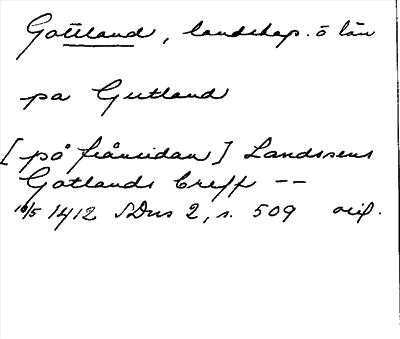 Gotland, landskap. o län
pa Gutland
[på frånsidan] Landssens
Gotlands breff --
16/5 1412 SDns 2, s. 509 orig.